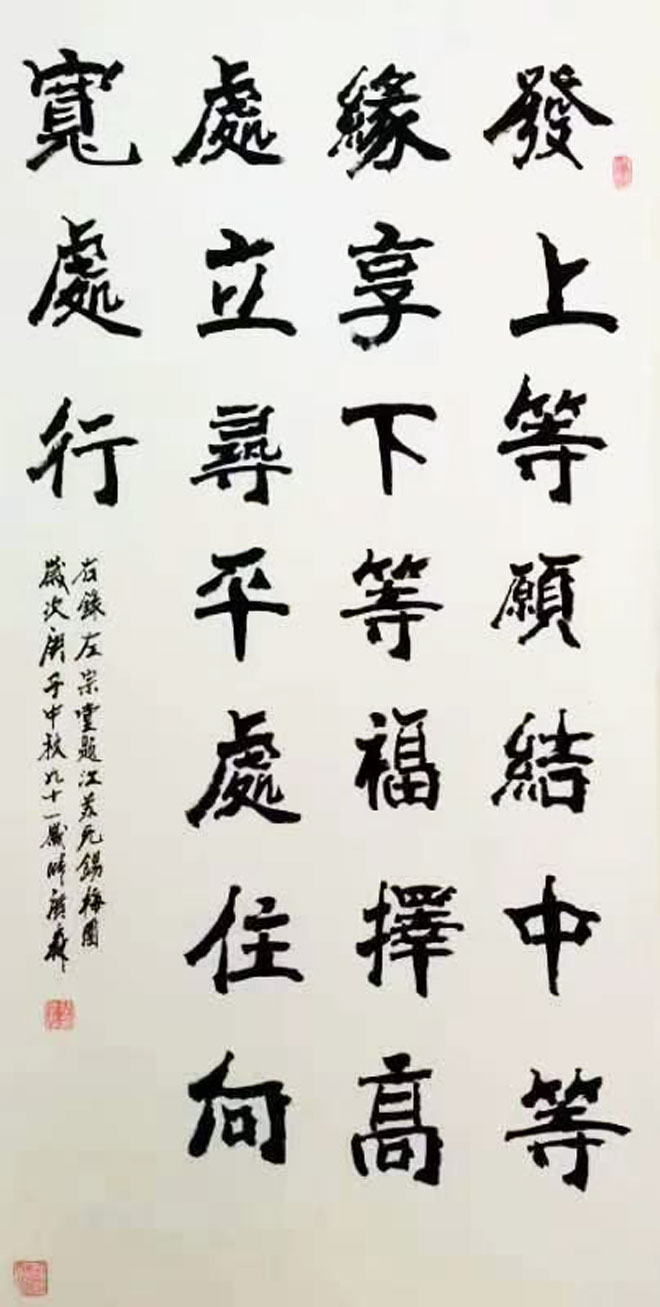 發上等願結中等
緣享下等福擇高
處立尋平處住向
寬處行
右錄左宗堂題江蘇無錫梅園
歲次庚子中秋九十一歲時廣